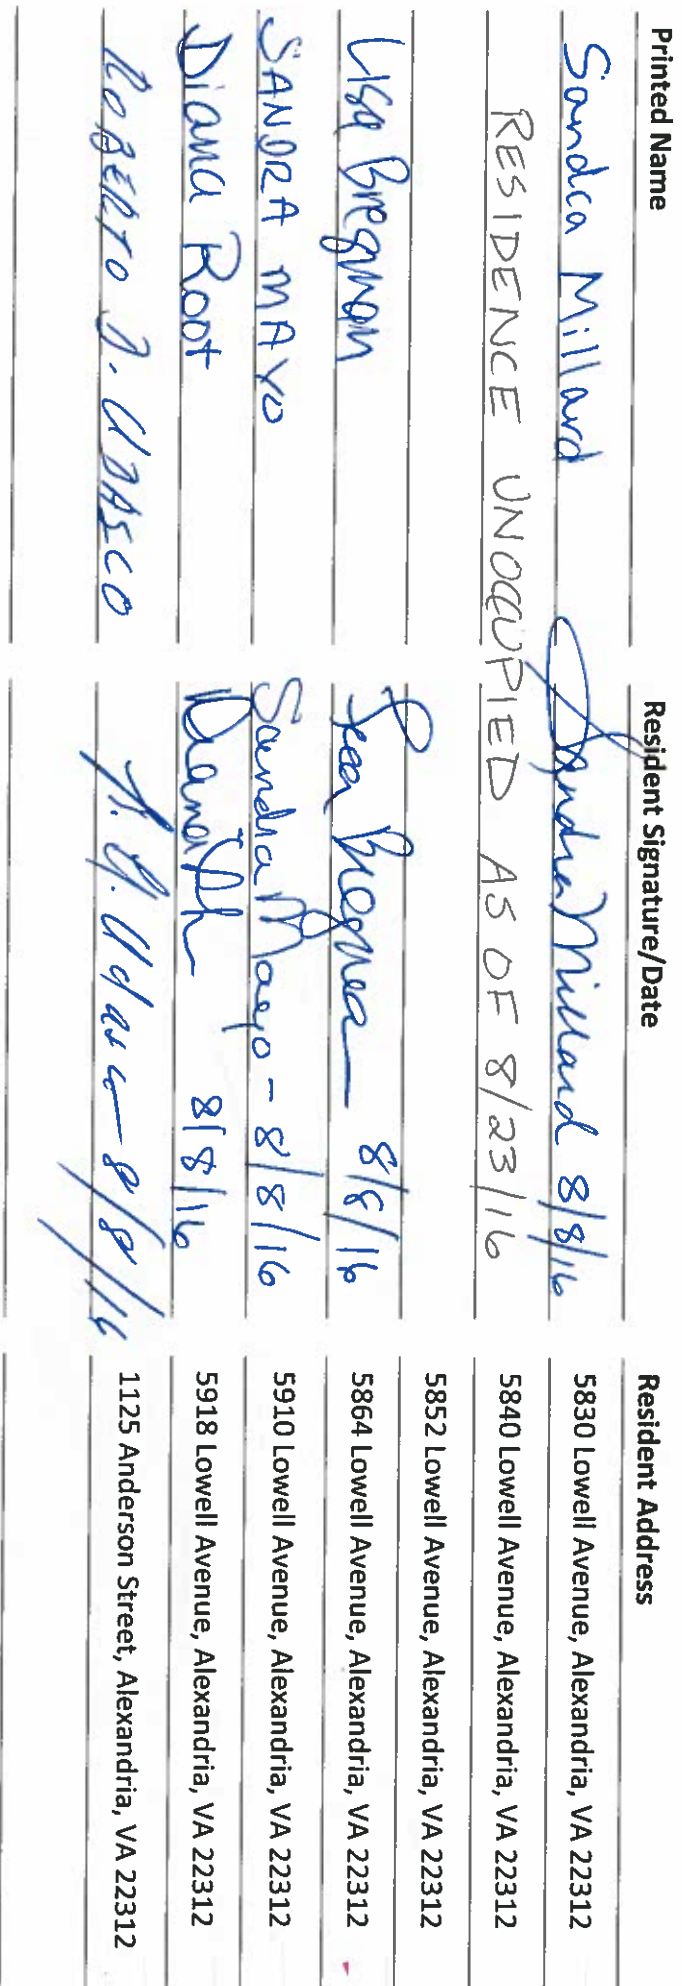 Printed Name Resident Signature/Date Resident Address
Sandra Millard Sandra Millard 8/8/16 5830 Lowell Avenue, Alexandria, VA 22312
RESIDENCE UNOCCUPIED AS OF 8/23/16 5840 Lowell Avenue, Alexandria, VA 22312
5852 Lowell Avenue, Alexandria, VA 22312
Lisa Bregman Lisa Bregman 8/8/16 5864 Lowell Avenue, Alexandria, VA 22312
SANDRA MAYO Sandra Mayo - 8/8/16 5910 Lowell Avenue, Alexandria, VA 22312
Diana Root Diana 8/8/16 5918 Lowell Avenue, Alexandria, VA 22312
ROBERTO J. UDASCO R. J. Udasco 8/8/16 1125 Anderson Street, Alexandria, VA 22312